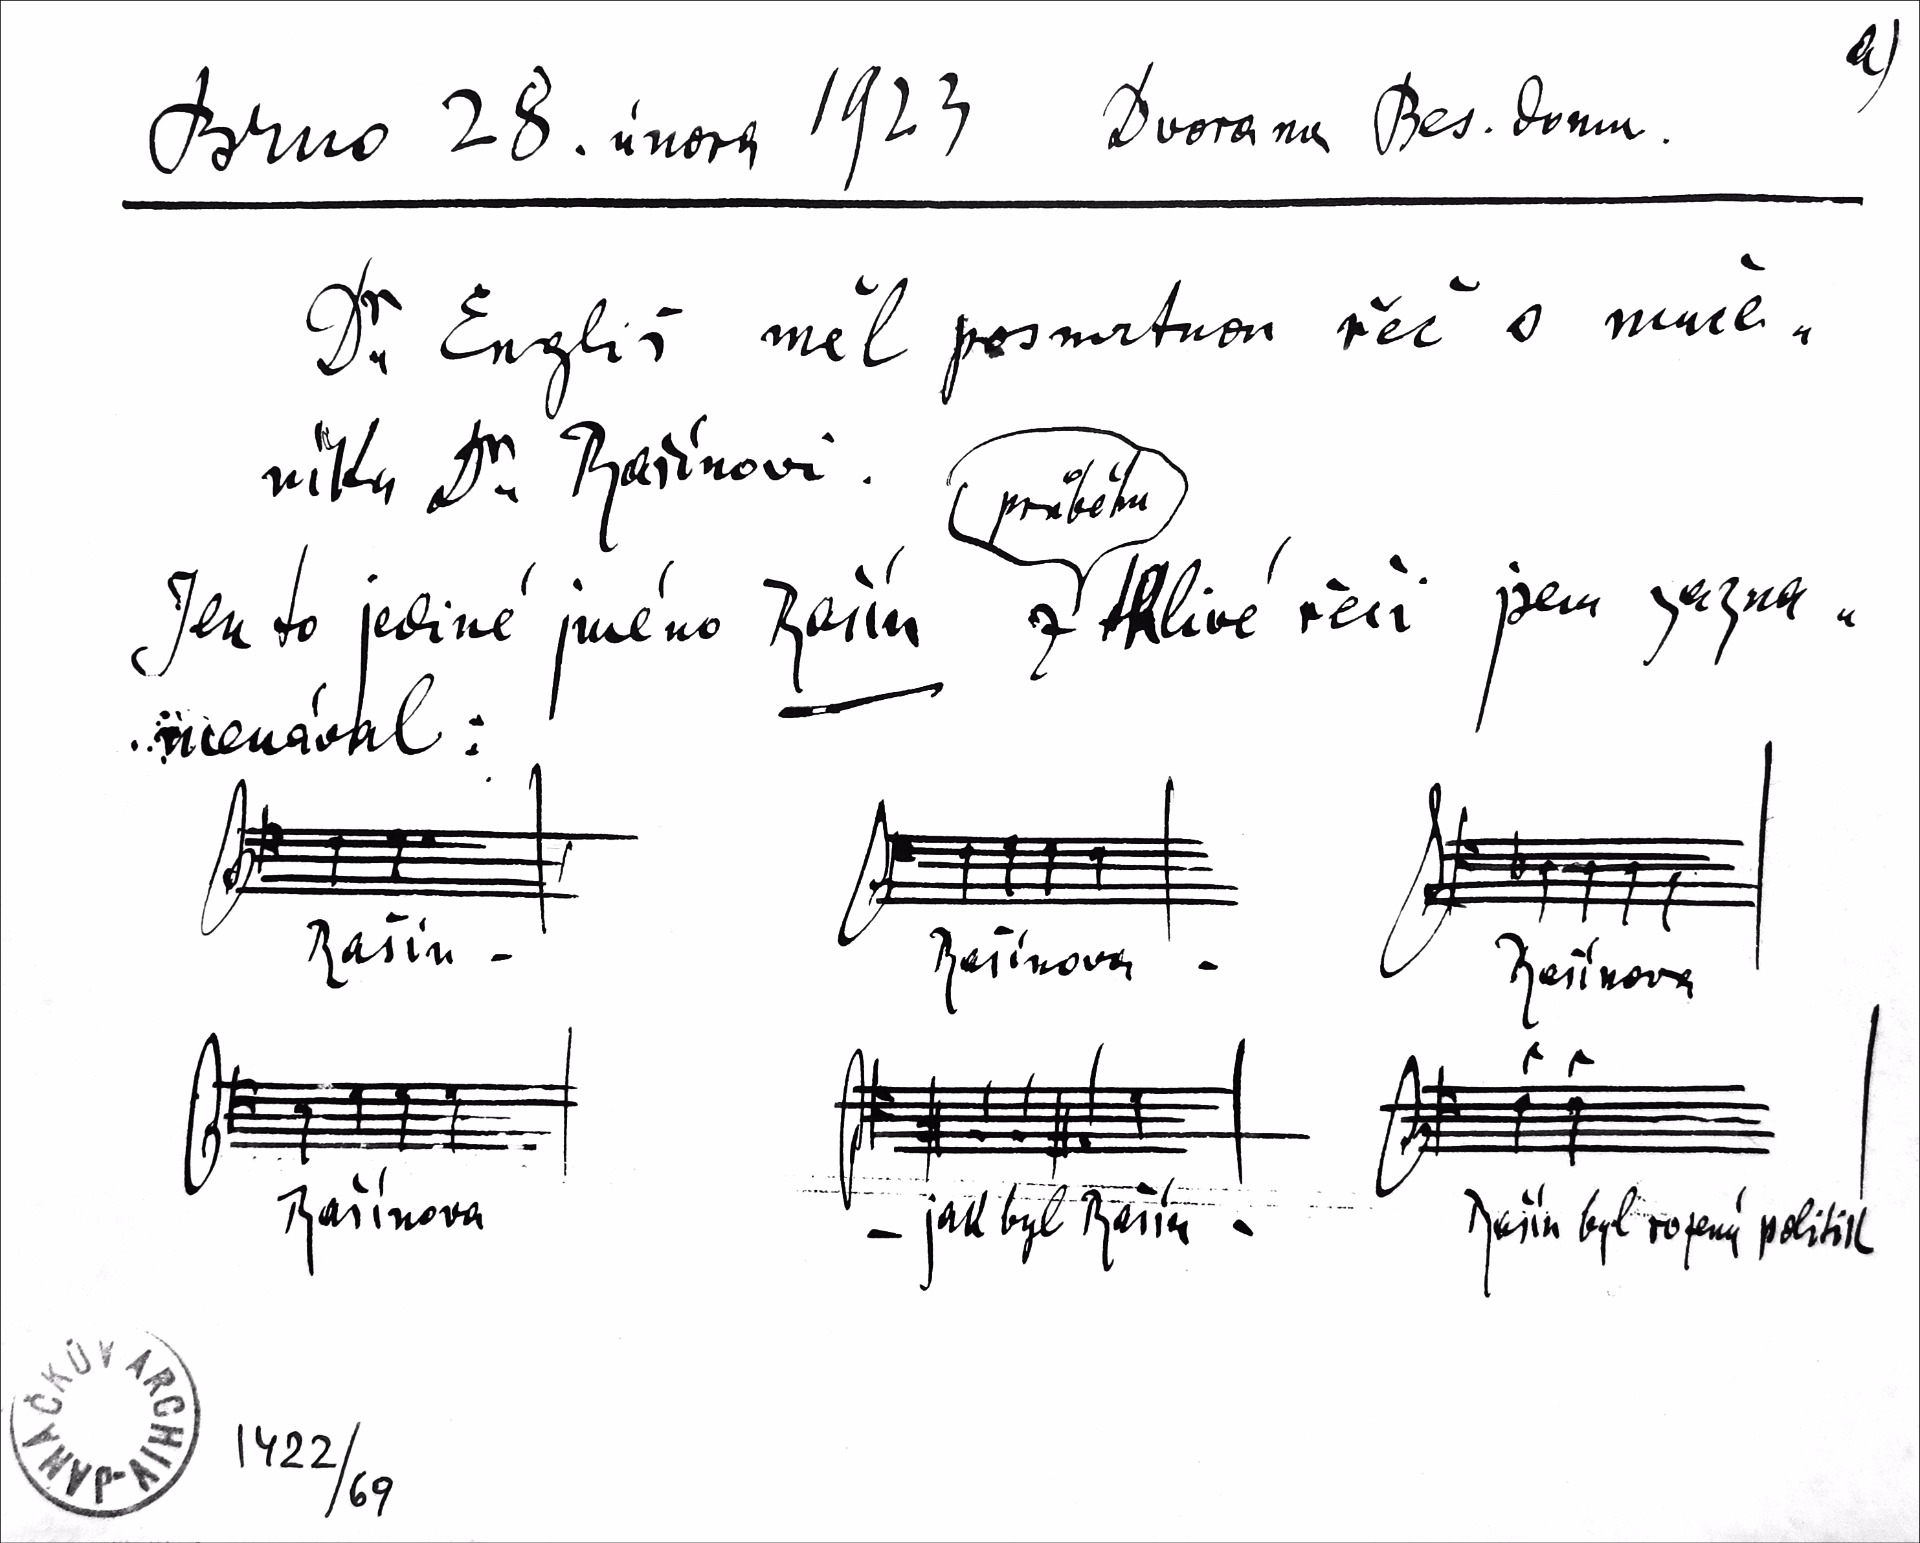 a)
Brno 28. února 1923 Dvorana Bes. domu.
Dr. Engliš měl posmrtnou řeč o muče„
níku Dr. Rašínovi.
průběhu
Jen to jediné jméno Rašín z tklivé řeči jsem zazna„
menával:
Rašín - Rašínova - Rašínova
Rašínova - jak byl Rašín - Rašín byl rozený politik
JANÁČKŮV ARCHIV
1422/69